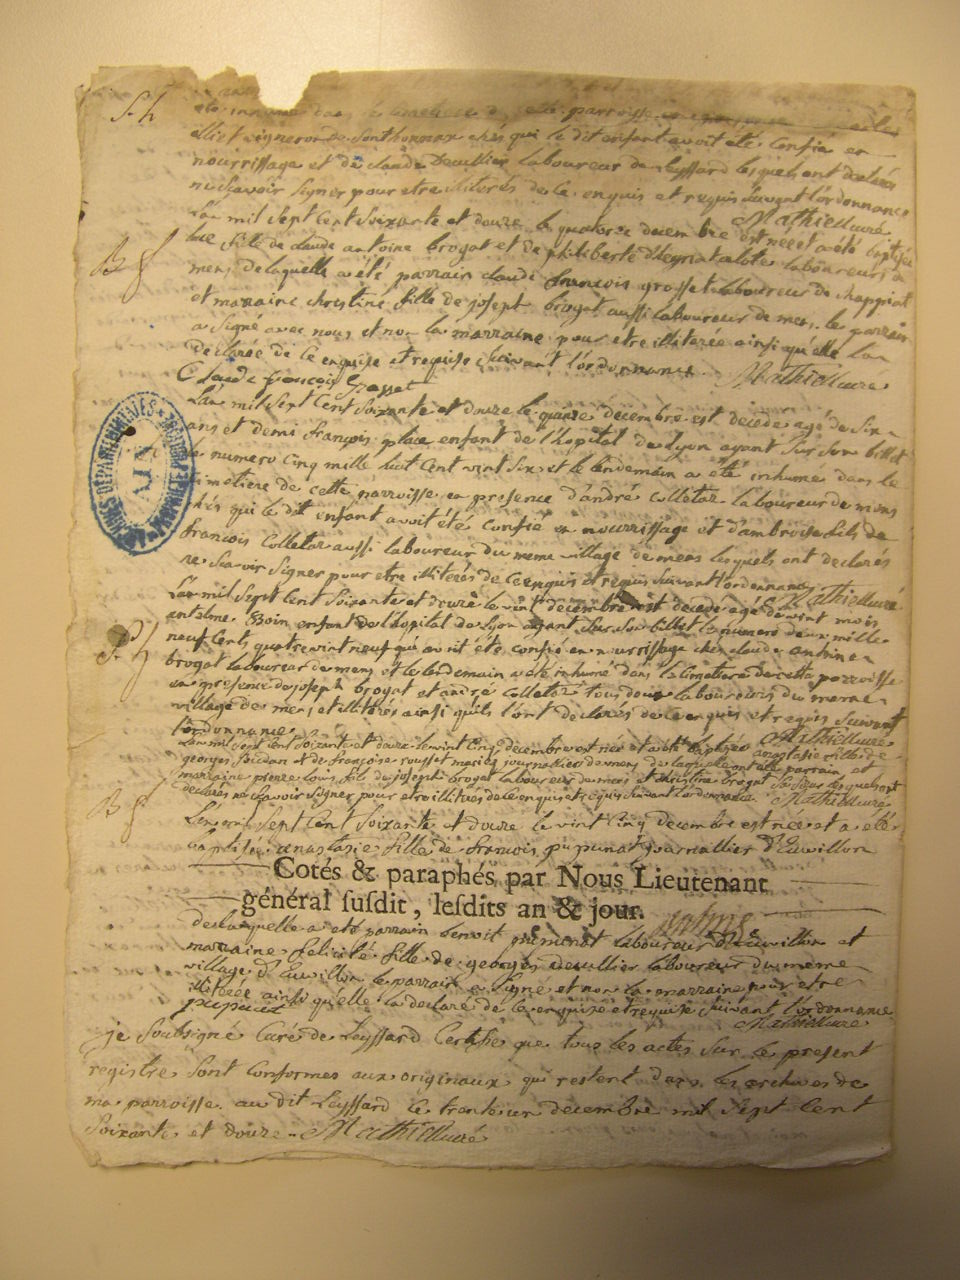 S. h
été inhumé dans le cimetiere de cette parroisse en presence
vigneron de Sonthonnax chés qui le dit enfant avoit été confié en
nourrissage et de claude Deullier laboureur de leyssard lesquels ont declarés
ne Scavoir Signer pour etre illiterés de ce enquis et requis Suivant l'ordonnance
Mathieu curé
L'an mil Sept Cent Soixante et douze le quatorze decembre est née et a été baptisée
B f
fille de claude antoine brogat et de philiberte laboureurs de
mens de laquelle a été parrain claude francois grosset laboureur de chappiat
et marraine christine fille de joseph brogat aussi laboureur de mens. le parrain
a Signé avec nous et non la marraine pour etre illiterée ainsi qu'elle l'a
declarée de ce enquise et requise Suivant l'ordonnance. Mathieu curé
Claude francois Grosset
L'an mil Sept Cent Soixante et douze le quinze decembre est decedé agé de Six
ans et demi françois place enfant de l'hopital de Lyon ayant Sur Son billet
le numero Cinq mille huit Cent vint Six et le lendemain a été inhumé dans le
cimetiere de cette parroisse en presence d'andré colletaz laboureur de mens
chés qui le dit enfant avoit été confié en nourrissage et d'ambroise fils de
francois Colletaz aussi laboureur du meme village de mens lesquels ont declarés
ne Scavoir Signer pour etre illiterés de ce enquis et requis Suivant l'ordonnance Mathieu curé
L'an mil Sept Cent Soixante et douze le vint decembre est decedé agé de vint mois
antelme Boin enfant de l'hopital de Lyon ayant Sur Son billet le numero deux mille
S. h
neuf Cents quatrevint neuf qui avoit été confié en nourrissage chés claude antoine
brogat laboureur de mens et le lendemain a été inhumé dans le Cimetiere de cette parroisse
en presence de joseph brogat et andré Colletaz tous deux laboureurs du meme
village de mens et illiterés ainsi qu'ils l'ont declarés de ce enquis et requis Suivant
l'ordonnance. Mathieu curé
L'an mil Sept Cent Soixante et douze le vint Cinq decembre est née et a été baptisée anastasie fille de
georges et de françoise rousset mariés journalliers de mens de laquelle ont été parrain et
marraine pierre louis fils de joseph brogat laboureur de mens et christine brogat Sa Soeur lesquels ont
declarés ne Scavoir Signer pour etre illiterés de ce enquis et requis Suivant l'ordonnance Mathieu curé
B f
L'an mil Sept Cent Soixante et douze le vint Cinq decembre est née et a été
baptisée anastasie fille de francois journallier d'Euwillon
Cotés & paraphés par Nous Lieutenant
général ſuſdit, leſdits an & jour.
de laquelle a été parrain benoit laboureur d'Euwillon et
marraine felicité fille de georges deullier laboureur du meme
village d'Euwillon le parrain a Signé et non la marraine pour etre
illiterée ainsi qu'elle l'a declaré de ce enquise et requise Suivant l'ordonnance
Mathieu curé
je Soubsigné Curé de Leyssard Certifie que tous les actes Sur le present
registre Sont Conformes aux originaux qui restent dans les archives de
ma parroisse. au dit Leyssard le trente un decembre mil Sept Cent
Soixante et douze.. Mathieu curé
ARCHIVES DÉPARTEMENTALES
AIN